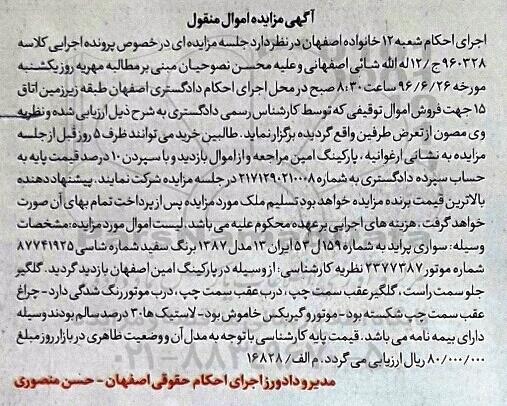 آگهی مزایده اموال منقول
اجرای احکام شعبه ۱۲ خانواده اصفهان در نظر دارد جلسه مزایده ای در خصوص پرونده اجرایی کلاسه
۹۶۰۳۲۸ ج/۱۲ له الله شائی اصفهانی و علیه محسن نصوحیان مبنی بر مطالبه مهریه روز یکشنبه
مورخه ۹۶/۶/۲۶ ساعت ۸:۳۰ صبح در محل اجرای احکام دادگستری اصفهان طبقه زیرزمین اتاق
۱۵ جهت فروش اموال توقیفی که توسط کارشناس رسمی دادگستری به شرح ذیل ارزیابی شده و نظریه
وی مصون از تعرض طرفین واقع گردیده برگزار نماید. طالبین خرید می توانند ظرف ۵ روز قبل از جلسه
مزایده به نشانی ارغوانیه، پارکینگ امین مراجعه و از اموال بازدید و با سپردن ۱۰ درصد قیمت پایه به
حساب سپرده دادگستری به شماره ۲۱۷۱۲۹۰۲۱۰۰۸ در جلسه مزایده شرکت نمایند. پیشنهاد دهنده
بالاترین قیمت برنده مزایده خواهد بود تسلیم ملک مورد مزایده پس از پرداخت تمام بهای آن صورت
خواهد گرفت. هزینه های اجرایی بر عهده محکوم علیه می باشد. لیست اموال مورد مزایده: مشخصات
وسیله: سواری پراید به شماره ۱۵۹ ل ۵۳ ایران ۱۳ مدل ۱۳۸۷ برنگ سفید شماره شاسی ۸۷۷۴۱۹۲۵
شماره موتور ۳۳۷۷۳۸۷ نظریه کارشناسی: از وسیله در پارکینگ امین اصفهان بازدید گردید. گلگیر
جلو سمت راست، گلگیر عقب سمت چپ، درب عقب سمت چپ، درب موتور رنگ شدگی دارد - چراغ
عقب سمت چپ شکسته بود - موتور و گیربکس خاموش بود - لاستیک ها ۳۰ درصد سالم بودند وسیله
دارای بیمه نامه می باشد. قیمت پایه کارشناسی با توجه به مدل آن و وضعیت ظاهری در بازار روز مبلغ
۸۰/۰۰۰/۰۰۰ ریال ارزیابی می گردد. م الف/ ۱۶۸۲۸
مدیر و دادورز اجرای احکام حقوقی اصفهان - حسن منصوری